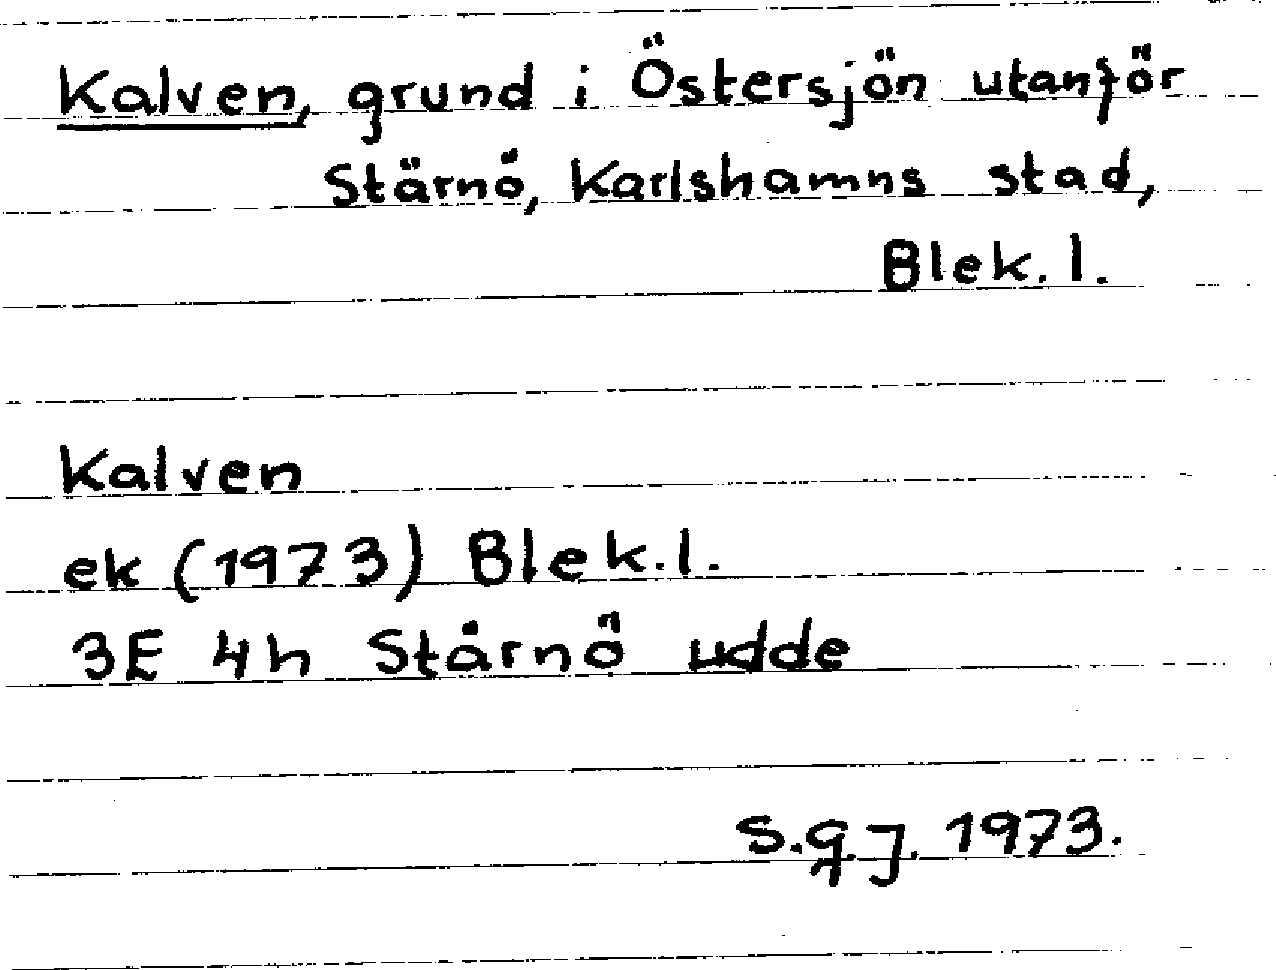 Kalven, grund i Östersjön utanför
Stärnö, Karlshamns stad,
Blek. l.
Kalven
ek (1973) Blek. l.
3E 4h Stärnö udde
S.G.J. 1973.